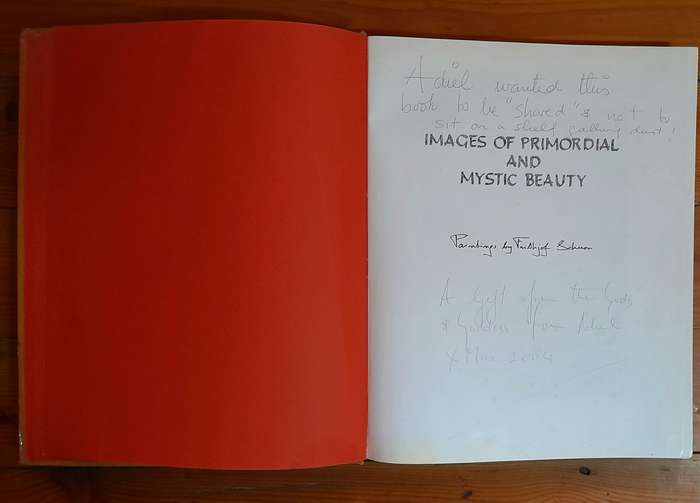 Adiel wanted this
book to be "shared" & not to
sit on a shelf gathering dust!
IMAGES OF PRIMORDIAL
AND
MYSTIC BEAUTY
Paintings by Frithjof Schuon
A Gift from the Gods
& Goddess from Adiel
X Mas 2004